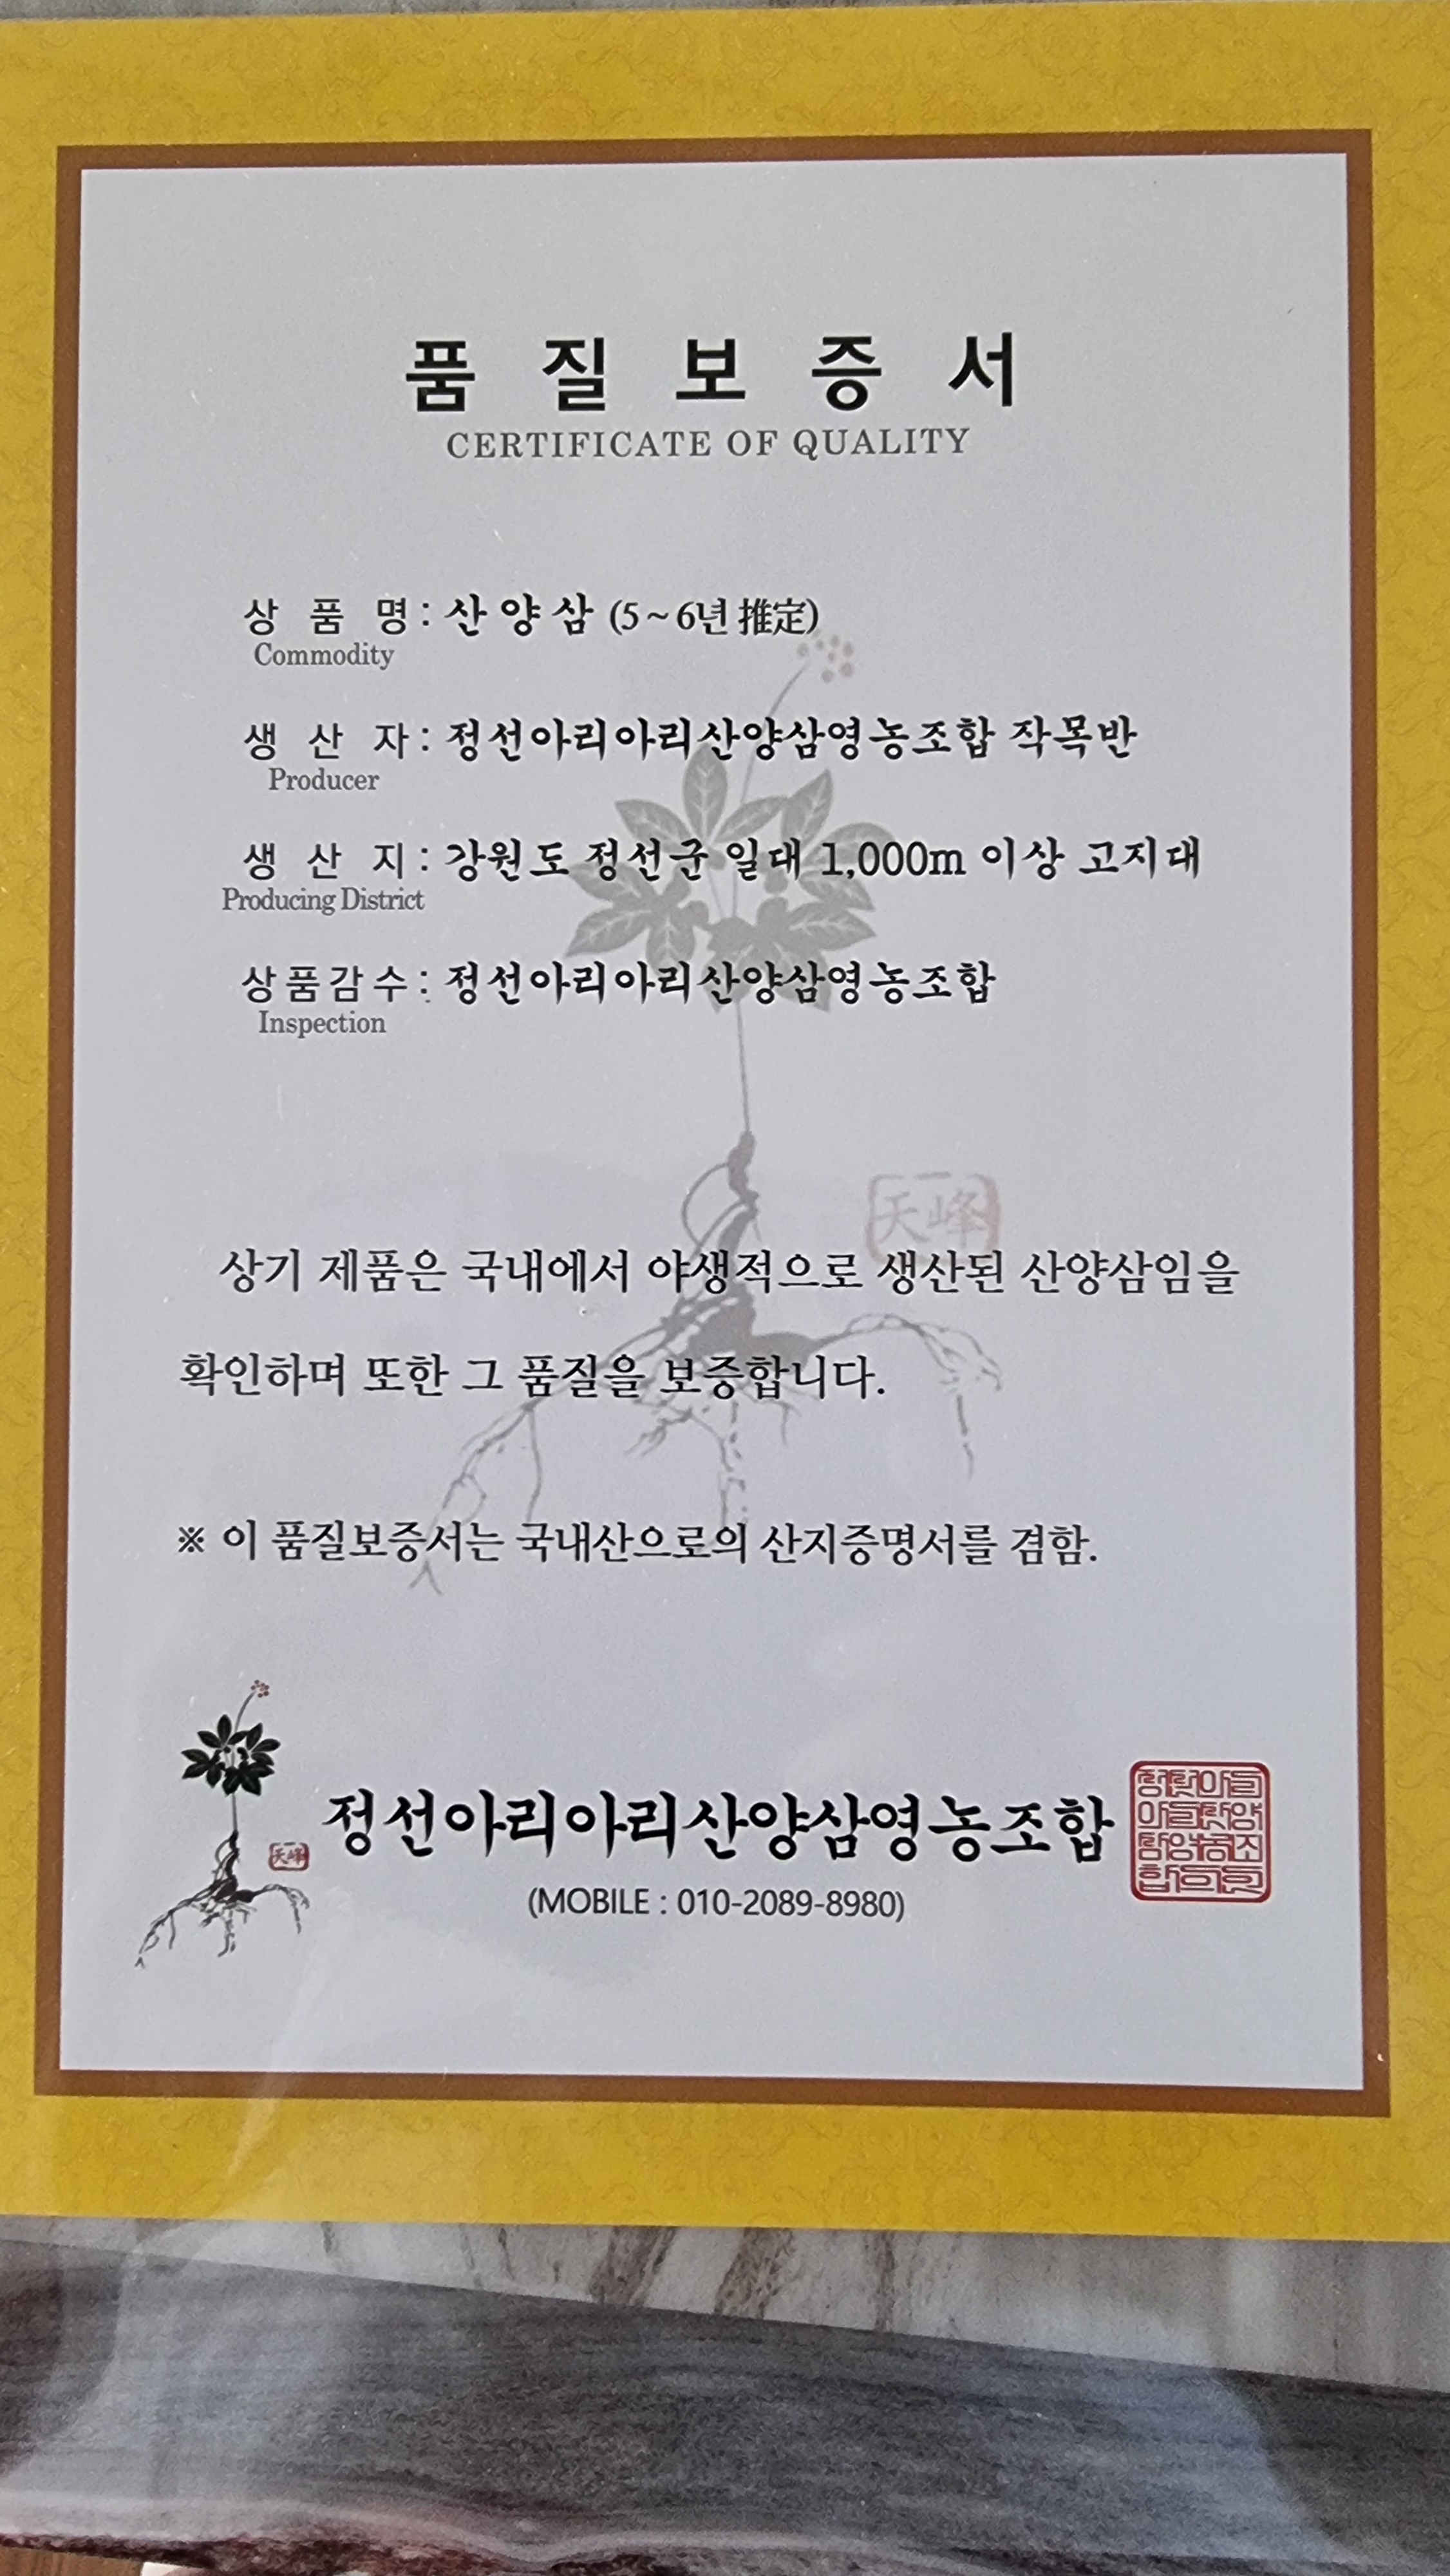 품 질 보 증 서
CERTIFICATE OF QUALITY
상 품 명 : 산 양 삼 (5~6년 推定)
Commodity
생 산 자 : 정선아리아리산양삼영농조합 작목반
Producer
생 산 지 : 강원도 정선군 일대 1,000m 이상 고지대
Producing District
상품감수 : 정선아리아리산양삼영농조합
Inspection
天峰
상기 제품은 국내에서 야생적으로 생산된 산양삼임을
확인하며 또한 그 품질을 보증합니다.
※ 이 품질보증서는 국내산으로의 산지증명서를 겸함.
天峰
정선아리아리산양삼영농조합
(MOBILE : 010-2089-8980)